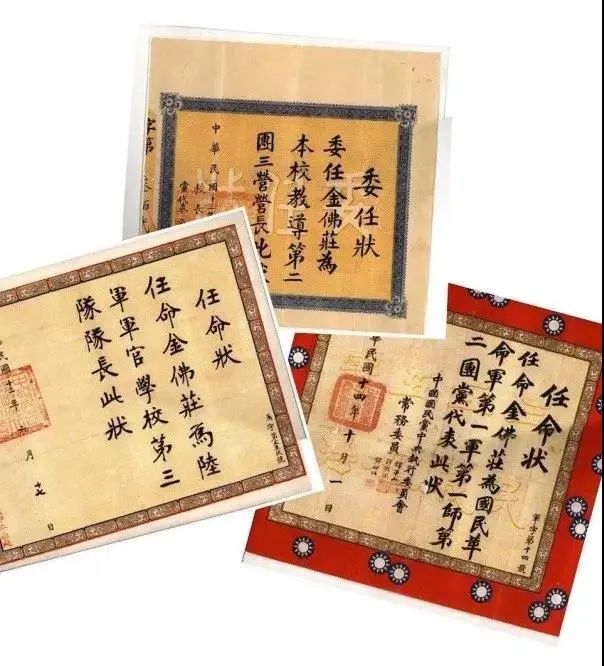 委任狀
委任金佛莊為
本校教導第二
團三營營長此
中華民國十
校長
黨代表
字第
任命狀
任命金佛莊為陸
軍軍官學校第三
隊隊長此狀
民國十三年
月
日
任命狀
任命金佛莊為國民革
命軍第一軍第一師第
二團黨代表此狀
中國國民黨中央執行委員會
常務委員
華民國十四年十月一日
軍字第十四號